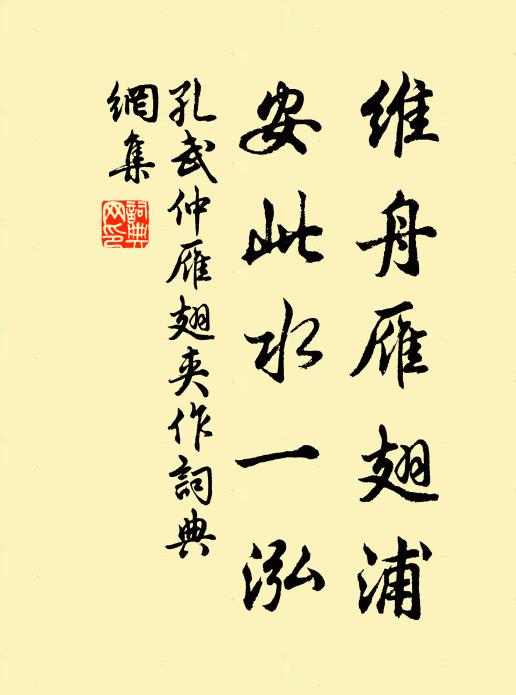 維舟雁翅浦
安此水一泓
孔武仲雁翅夾作詞典
網集
詞典
网印